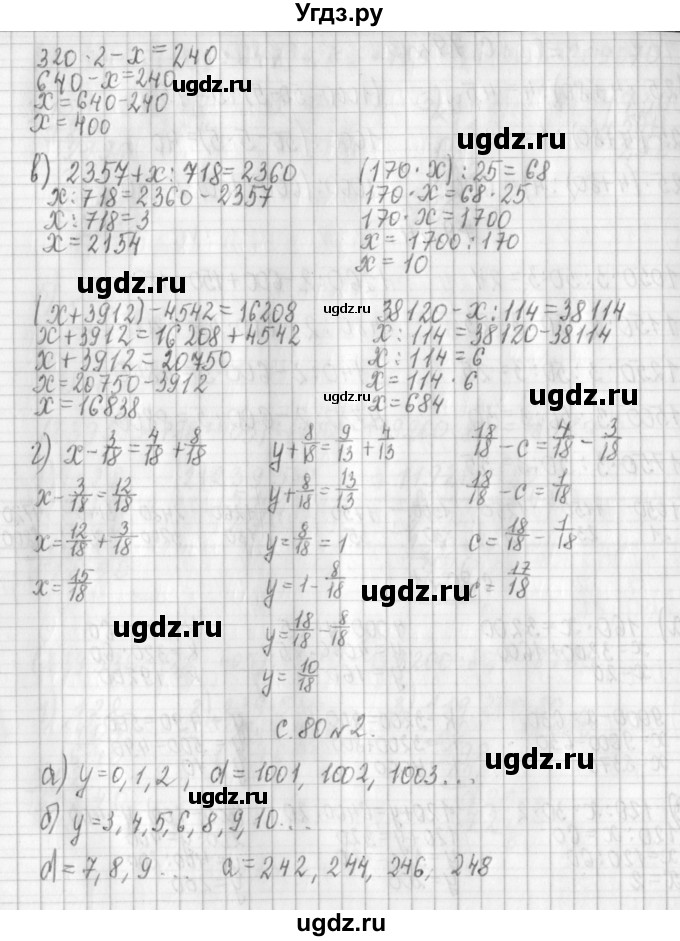 Угдз.ру
320 · 2 − x = 240
640 − x = 240
x = 640 − 240
x = 400
ugdz.ru
ugdz.ru
в) 2357 + x : 718 = 2360
x : 718 = 2360 − 2357
x : 718 = 3
x = 2154
(170 · x) : 25 = 68
170 · x = 68 · 25
170 · x = 1700
x = 1700 : 170
x = 10
ugdz.ru
ugdz.ru
(x + 3912) − 4542 = 16208
x + 3912 = 16208 + 4542
x + 3912 = 20750
x = 20750 − 3912
x = 16838
38120 − x : 114 = 38114
x : 114 = 38120 − 38114
x : 114 = 6
x = 114 · 6
x = 684
ugdz.ru
ugdz.ru
г) x − 3/18 = 4/18 + 8/18
x − 3/18 = 12/18
x = 12/18 + 3/18
x = 15/18
y + 8/18 = 9/13 + 4/13
y + 8/18 = 13/13
y = 8/18 = 1
y = 1 − 8/18
y = 18/18 − 8/18
y = 10/18
18/18 − c = 4/18 − 3/18
18/18 − c = 1/18
c = 18/18 − 1/18
c = 17/18
ugdz.ru
ugdz.ru
с. 80 № 2.
ugdz.ru
а) y = 0, 1, 2 ; d = 1001, 1002, 1003...
ugdz.ru
б) y = 3, 4, 5, 6, 8, 9, 10...
d = 7, 8, 9... a = 242, 244, 246, 248
ugdz.ru